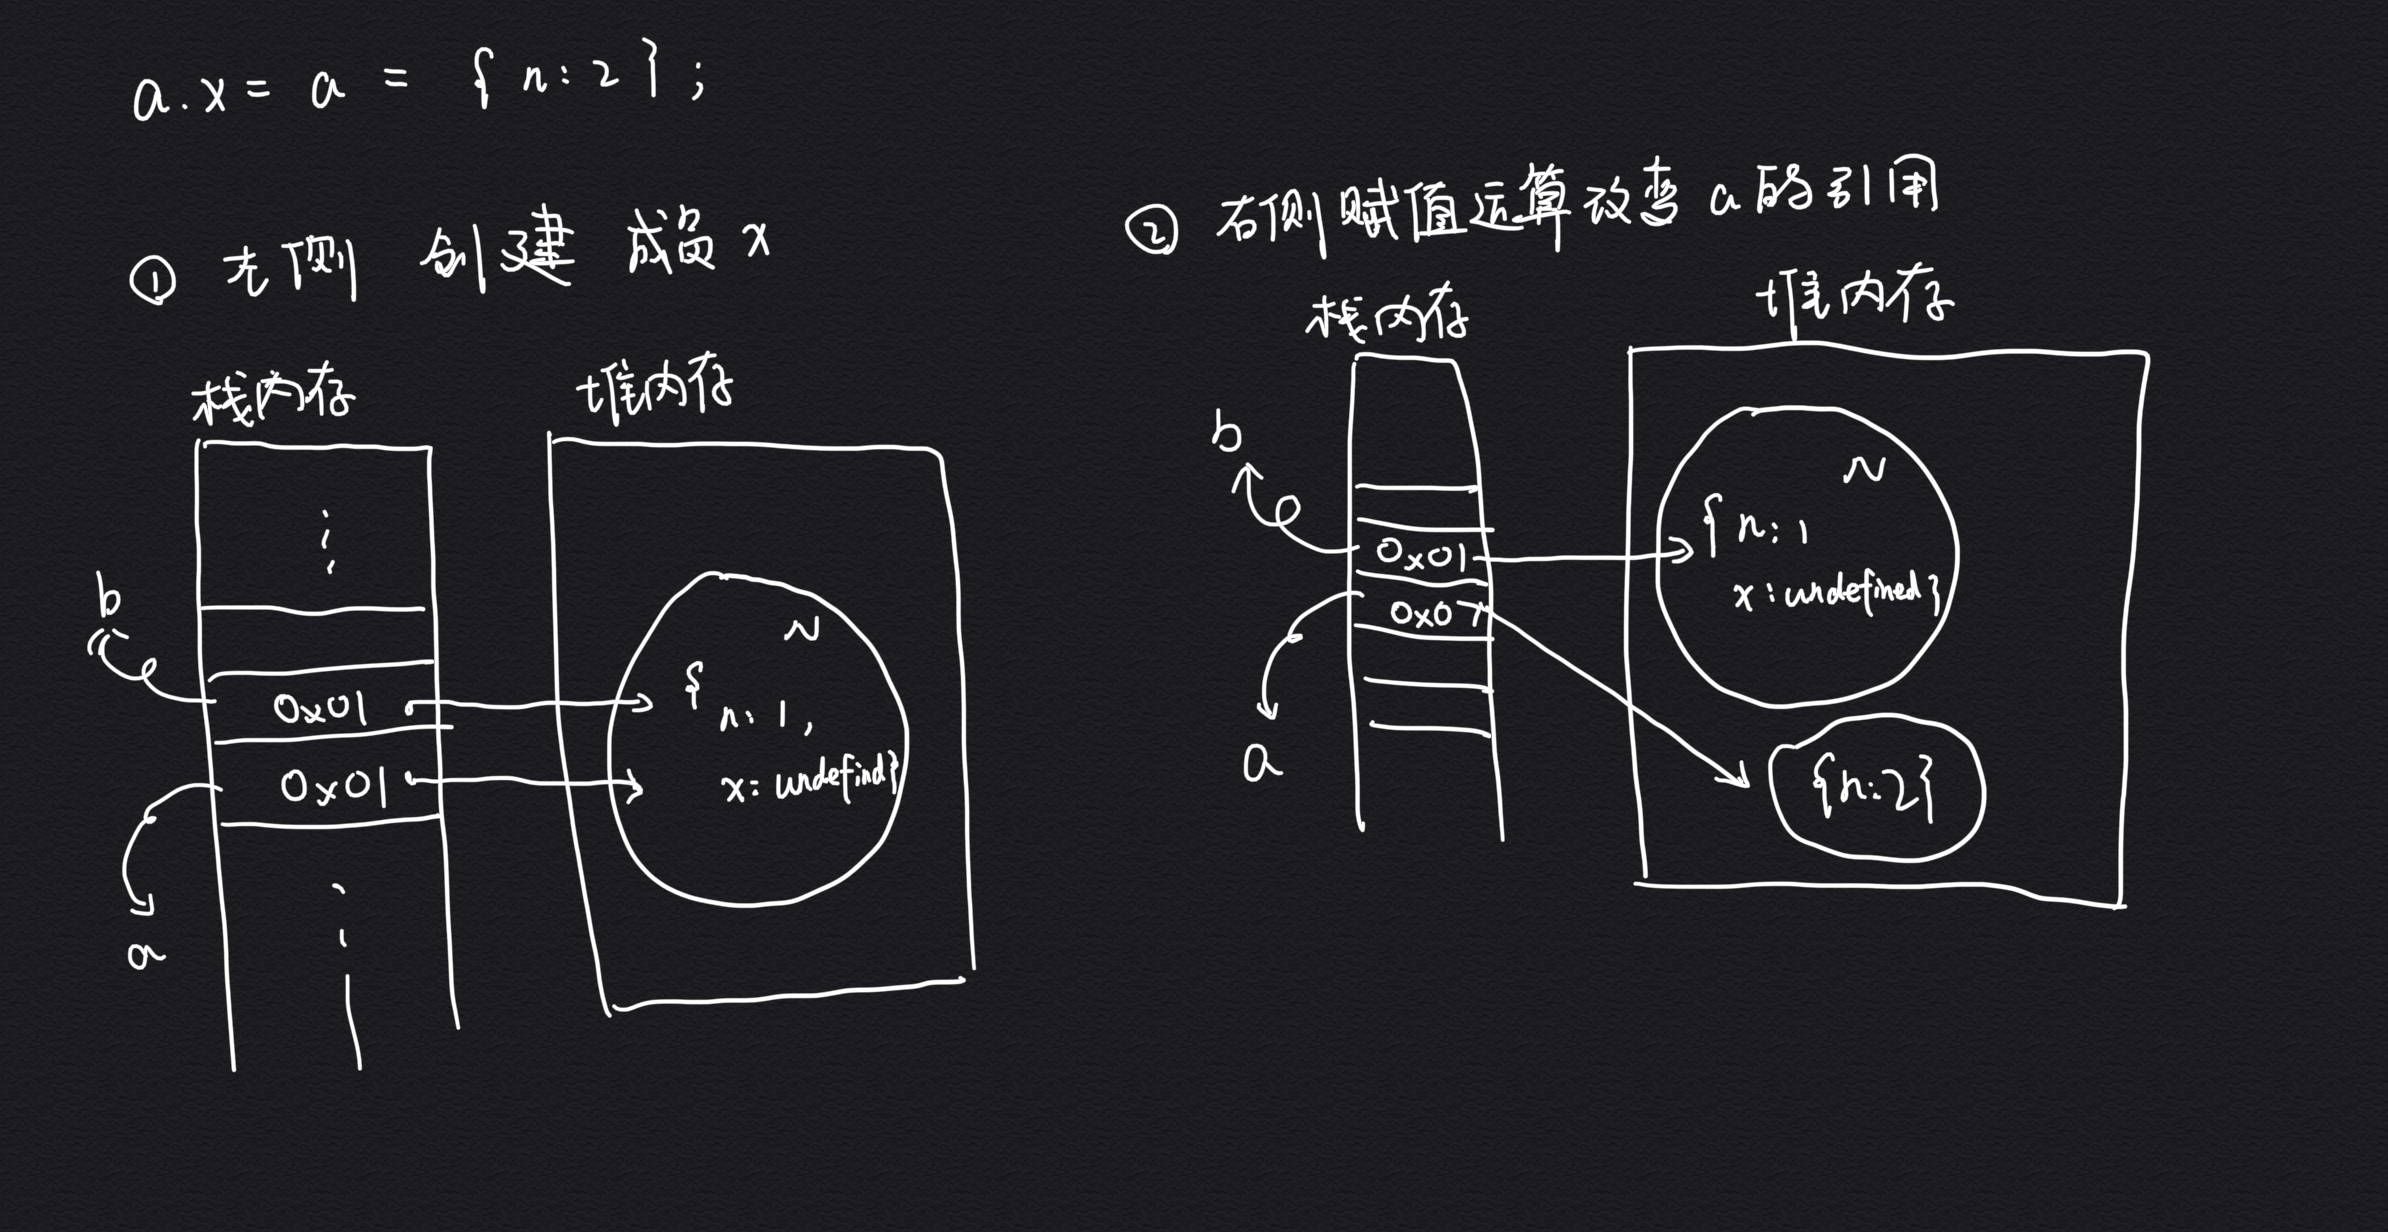 a.x = a = { n:2 };
① 左侧 创建 成员 x
栈内存
堆内存
b
N
{
0x01
n: 1,
0x01
x: undefind}
a
② 右侧赋值运算改变 a 的引用
栈内存
堆内存
b
N
{ n: 1
0x01
x: undefined}
0x07
a
{n:2}